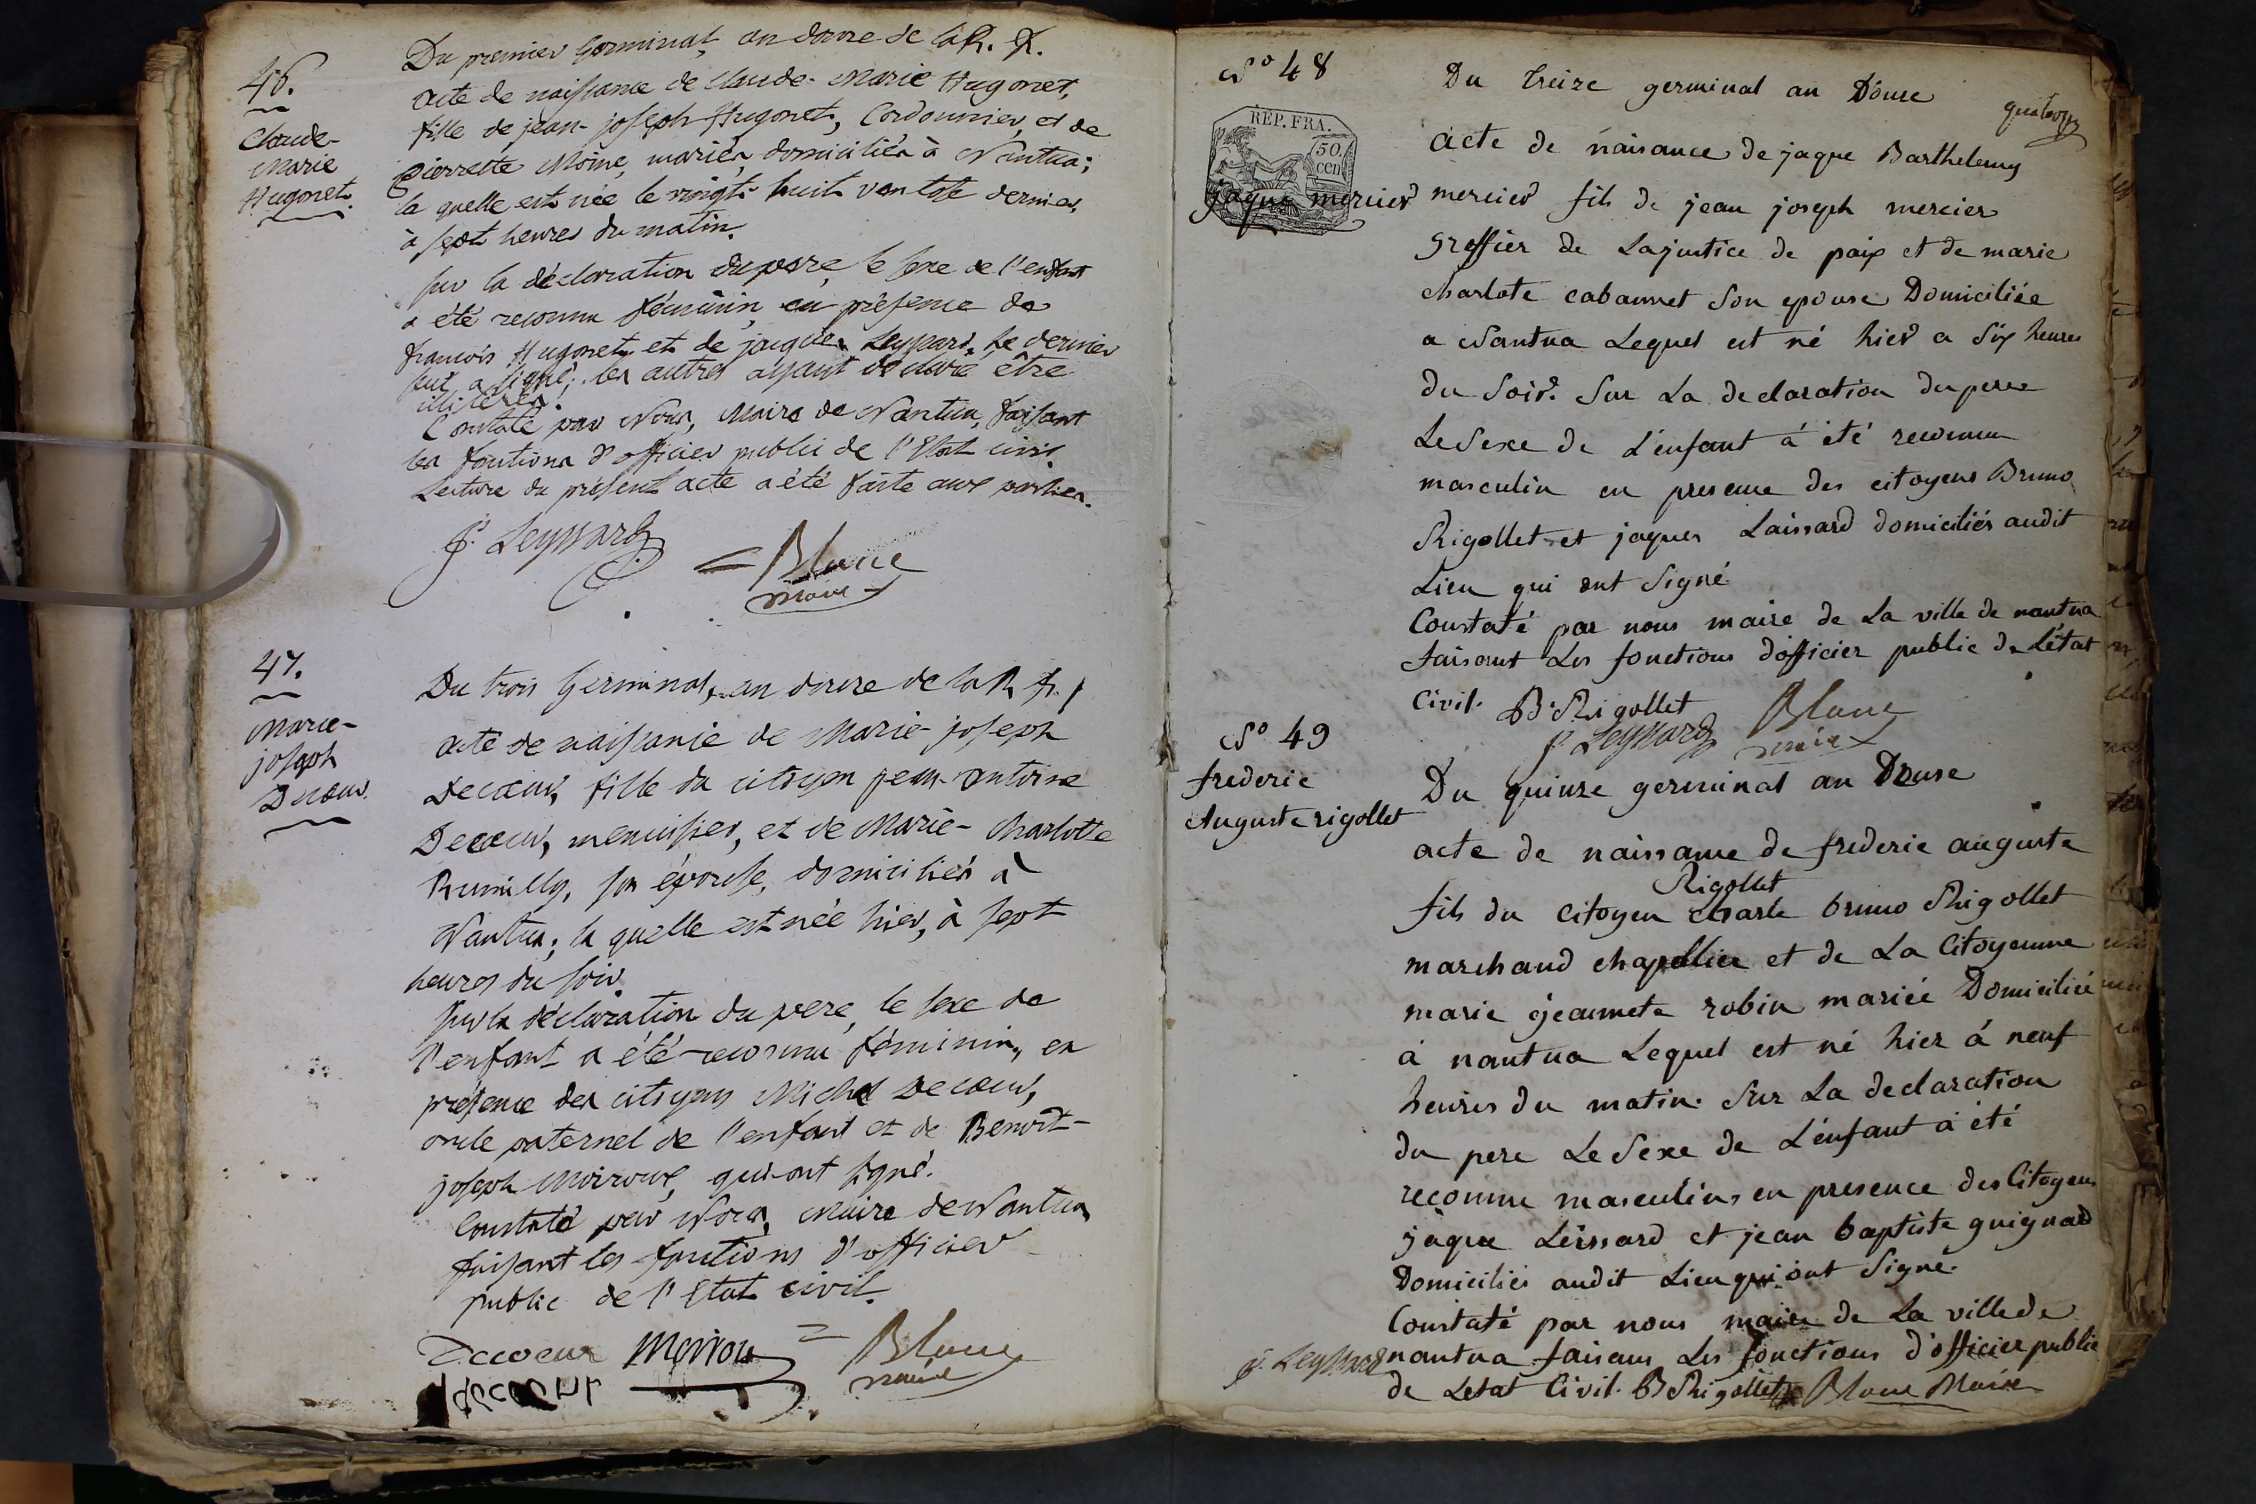 46.
Claude-
Marie
Hugonet.
Du premier Germinal, an douze de la R. f.
acte de naissance de Claude-Marie Hugonet,
fille de jean-joseph Hugonet, Cordonnier, et de
pierrette Moine, mariés, domiciliés à Nantua;
la quelle est née le vingt-huit ventose dernier,
à sept heures du matin.
sur la déclaration du pere, le sexe de l'enfant
a été reconnu féminin, en présence de
françois Hugonet et de jacques Leyssard, le dernier
seul a signé; les autres ayant déclaré être
illiterés.
Constaté par Nous, Maire de Nantua, faisant
les fonctions d'officier public de l'Etat civil.
Lecture du présent acte a été faite aux parties.
J. Leyssard
= Blanc
maire
47.
Marie-
joseph
Decoeur.
Du trois Germinal, an douze de la R. f.
acte de naissance de Marie-joseph
Decoeur, fille du citoyen jean-antoine
Decoeur, menuisier, et de Marie-Charlotte
Rumilly, son épouse, domiciliés à
Nantua; la quelle est née hier, à sept
heures du soir.
sur la déclaration du pere, le sexe de
l'enfant a été reconnu féminin, en
présence des citoyens Michel Decoeur,
oncle paternel de l'enfant et de Benoît-
joseph Moiroux, qui ont signé.
Constaté par Nous, Maire de Nantua
faisant les fonctions d'officier
public de l'Etat civil.
Decoeur Moiroux = Blanc
maire
decoeur
No 48
REP. FRA.
50.
cen
jaque mercier
Du treize germinal an Douse
quatorze
acte de naisance de jaque Barthelemy
mercier fils de jean joseph mercier
greffier de Lajustice de paix et de marie
charlote cabannet son epouse Domiciliée
a Nantua Lequel est né hier a six heures
du soir. sur La declaration du pere
Le sexe de L'enfant á été reconnu
masculin en presence des citoyens Bruno
Rigollet et jaques Laissard domiciliés audit
Lieu qui ont signé
Constaté par nous maire de La ville de nantua
faisant Les fonctions d'officier public de L'état
civil. B. Rigollet Blanc
J. Leyssard maire
No 49
frederic
Auguste rigollet
Du quinze germinal an Douse
acte de naissance de frederic auguste
Rigollet
fils du citoyen charle bruno Rigollet
marchand chapellier et de La Citoyenne
marie jeannete robin mariée Domicilié
á nantua Lequel est né hier á neuf
heures du matin. sur La declaration
du pere Le sexe de L'enfant á été
reconnu masculin, en presence des Citoyens
jaque Leissard et jean baptiste guignard
Domiciliés audit Lieu qui ont signé.
Constaté par nous maire de La ville de
nantua faisans Les fonctions d'officier public
de Letat Civil. B Rigollet Blanc Maire
J. Leyssard